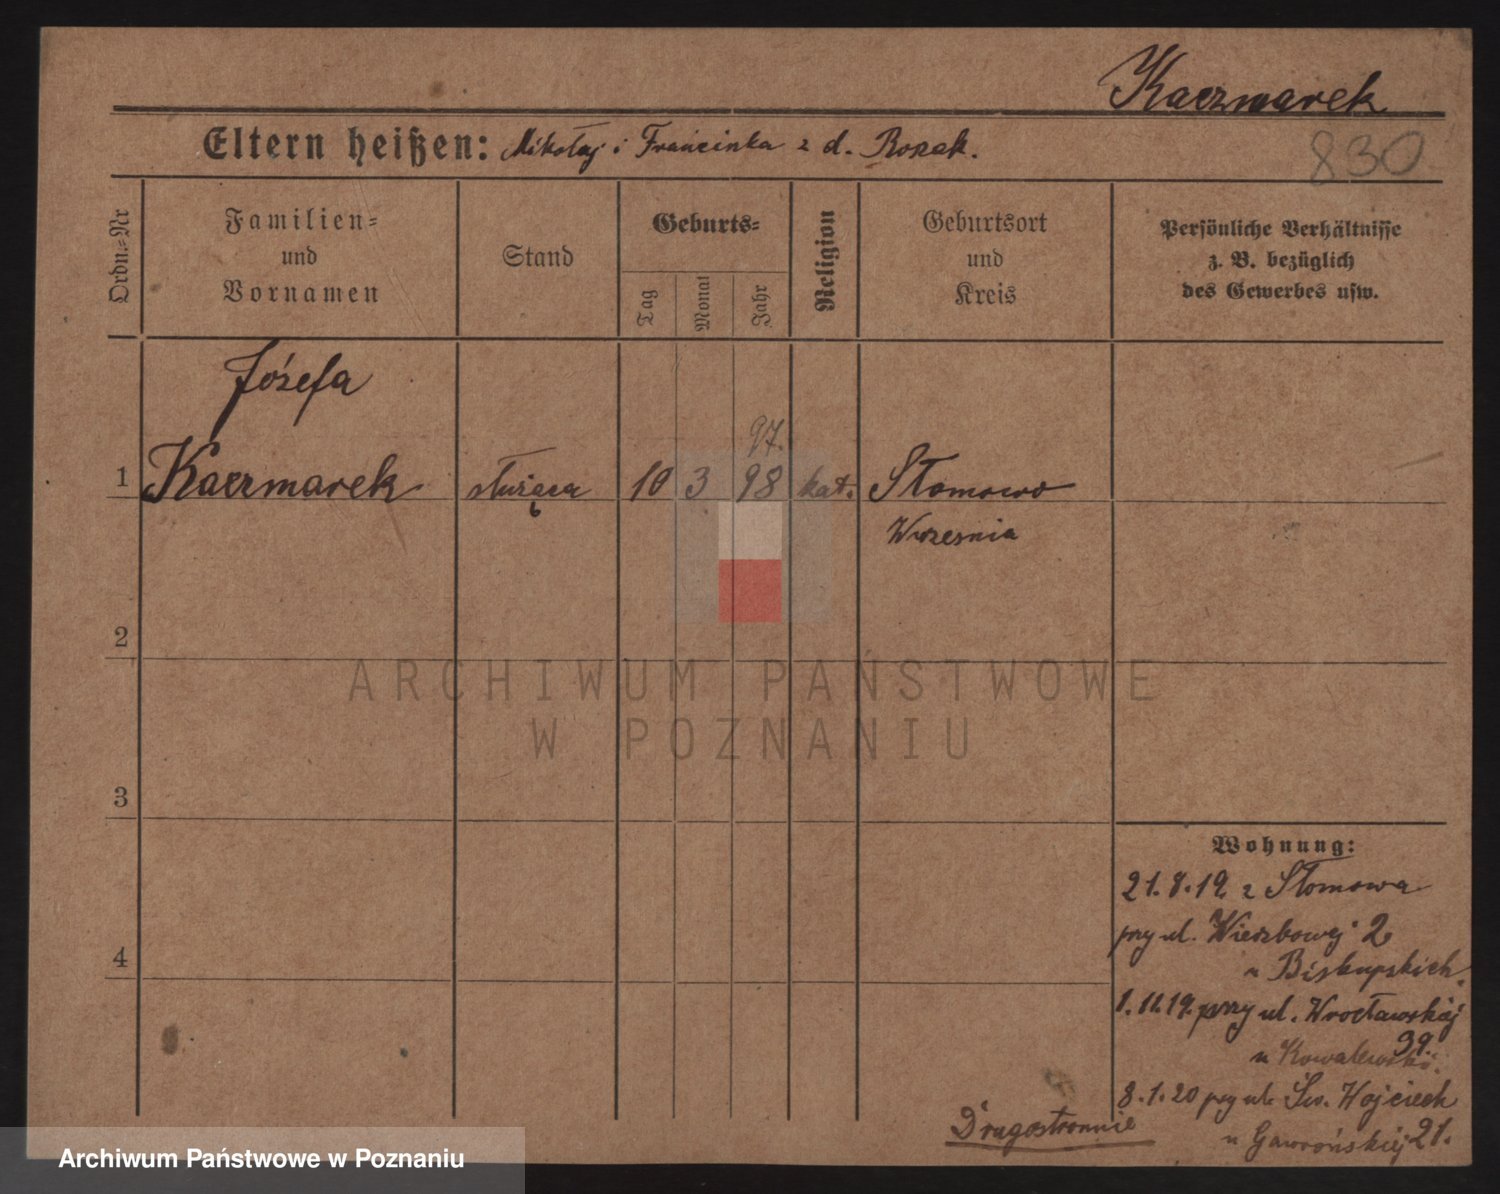 Kaczmarek
830
Eltern heißen: Mikołaj i Francinka z d. Rozak.
Ordn.=Nr
Familien=
und
Vornamen
Stand
Geburts=
Tag
Monat
Jahr
Religion
Geburtsort
und
Kreis
Persönliche Verhältnisse
z. B. bezüglich
des Gewerbes usw.
Józefa
97.
1 Kaczmarek służąca 10 3 98 kat. Słomowo
Wrzesnia
2
ARCHIWUM PAŃSTWOWE
W POZNANIU
3
Wohnung:
21.8.19 z Słomowa
przy ul. Wierzbowej 2
u Biskupskich
4
1.11.19. przy ul. Wrocławskiej
39.
u Kowalewski.
8.1.20 przy ul. Św. Wojciech
u Gawrońskiej 21.
Drugostronnie
Archiwum Państwowe w Poznaniu